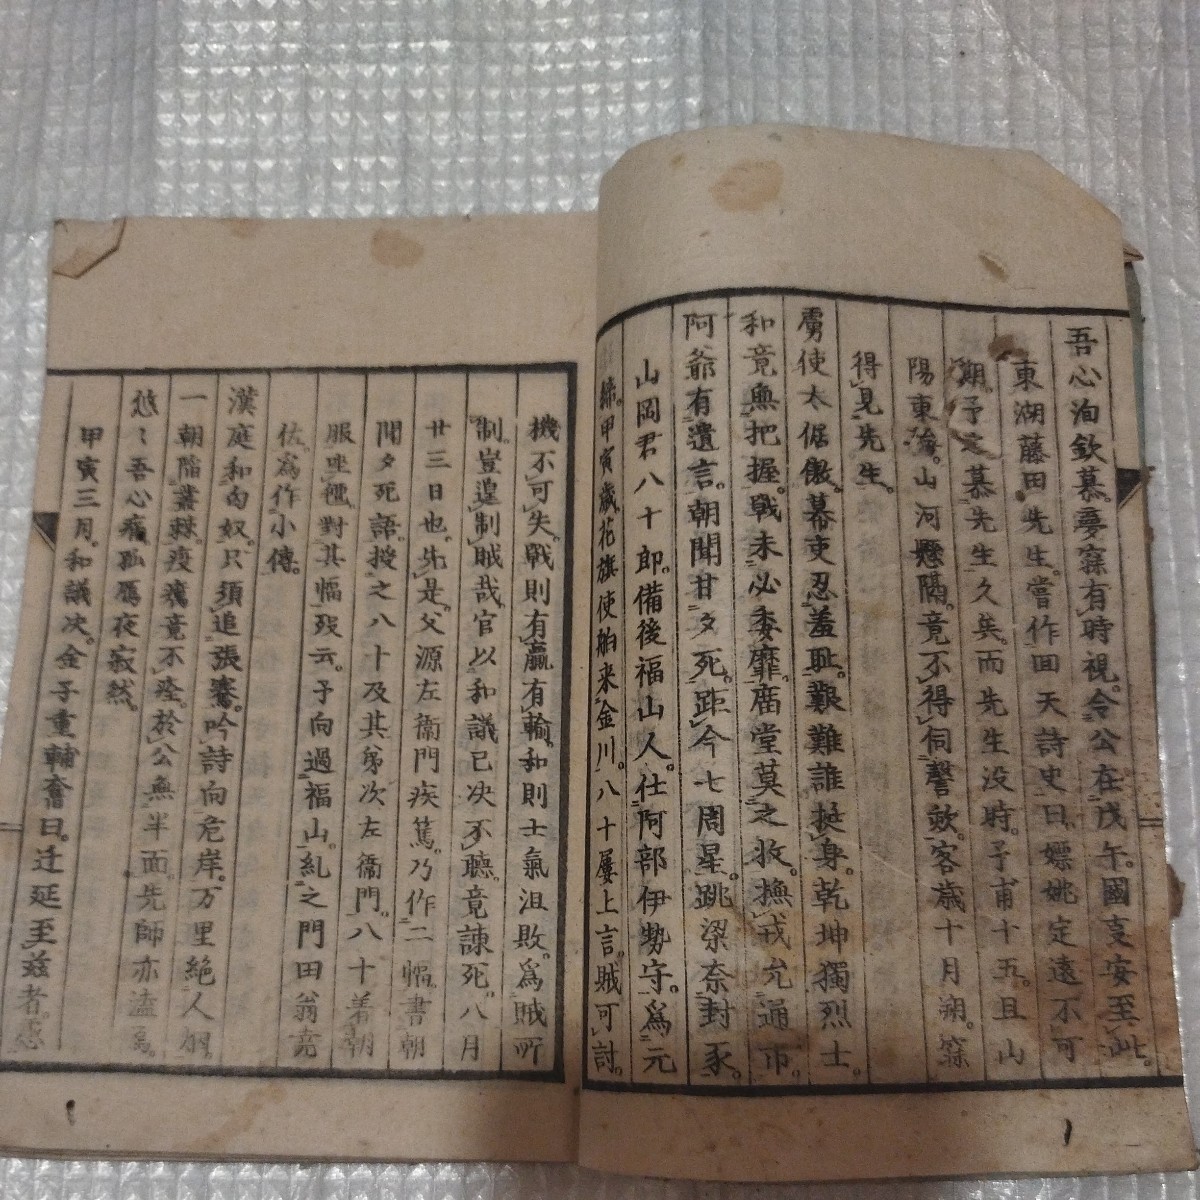 吾心洵欽慕。夢寐有時視。令公在戊午。國豈安至此。
東湖藤田先生。嘗作回天詩史曰。嫖姚定遠不可
期。予之慕先生久矣。而先生没時。予甫十五。且山
陽東海。山河懸隔。竟不得伺謦欬。客歳十月朔。寐
得見先生。
虜使太倨傲。幕吏忍羞耻。艱難誰挺身。乾坤獨烈士。
和竟無把握。戰未必委靡。庿堂莫之救。撫戎允通市。
阿爺有遺言。朝聞甘夕死。距今七周星。跳梁奈封豕。
山岡君八十郎。備後福山人。仕阿部伊勢守。爲元
締。甲寅歳花旗使舶来金川。八十屢上言。賊可討。
機不可失。戰則有贏有輸。和則士氣沮敗。爲賊所
制。豈遑制賊哉。官以和議已决不聽。竟諫死。八月
廿三日也。先是。父源左衞門疾篤。乃作二幅。書朝
聞夕死語。授之八十及其弟次左衞門。八十着朝
服坐櫬。對其幅歿云。予向過福山。糺之門田翁堯
佐。爲作小傳。
漢庭和匈奴。只須追張騫。吟詩向危岸。万里絶人烟。
一朝陷叢棘。瘦癘竟不痊。於公無半面。先師亦溘焉。
悠〻吾心痛。孤鴈夜寂然。
甲寅三月。和議决。金子重輔奮曰。迁延至茲者。